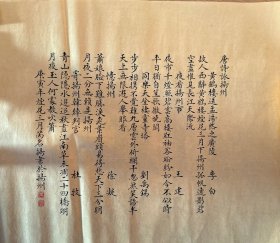 唐詩詠揚州
黃鶴樓送孟浩然之廣陵 李白
故人西辭黃鶴樓煙花三月下揚州孤帆遠影碧
空盡惟見長江天際流
夜看揚州市 王建
夜市千燈照碧雲高樓紅袖客紛紛如今不似時
平日猶自笙歌徹曉聞
同樂天登棲靈寺塔 劉禹錫
步步相攜不覺難九層雲外倚闌干忽然笑語半
天上無限遊人舉眼看
憶揚州 徐凝
蕭娘臉下難勝淚桃葉眉頭易得愁天下三分明
月夜二分無賴是揚州
寄揚州韓綽判官 杜牧
青山隱隱水迢迢秋盡江南草未凋二十四橋明
月夜玉人何處教吹簫
庚寅年煙花三月 書於揚州